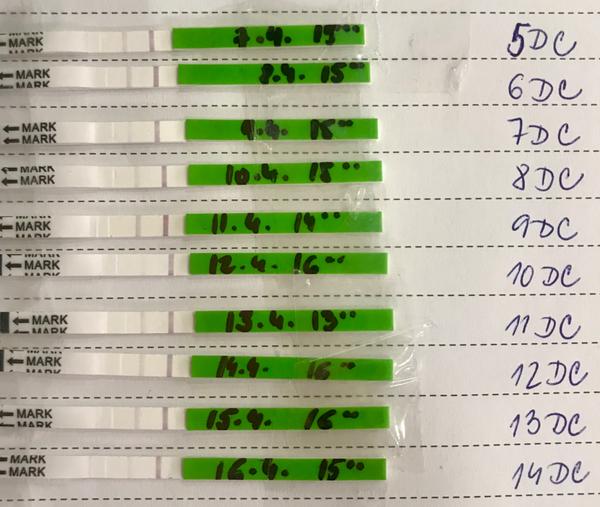 MARK MARK 7.4. 15⁰⁰ 5DC
MARK 8.4. 15⁰⁰ 6DC
MARK MARK 9.4. 15⁰⁰ 7DC
MARK MARK 10.4. 15⁰⁰ 8DC
MARK MARK 11.4. 14⁰⁰ 9DC
MARK MARK 12.4. 16⁰⁰ 10DC
MARK MARK 13.4. 13⁰⁰ 11DC
MARK MARK 14.4. 16⁰⁰ 12DC
MARK MARK 15.4. 16⁰⁰ 13DC
MARK MARK 16.4. 15⁰⁰ 14DC